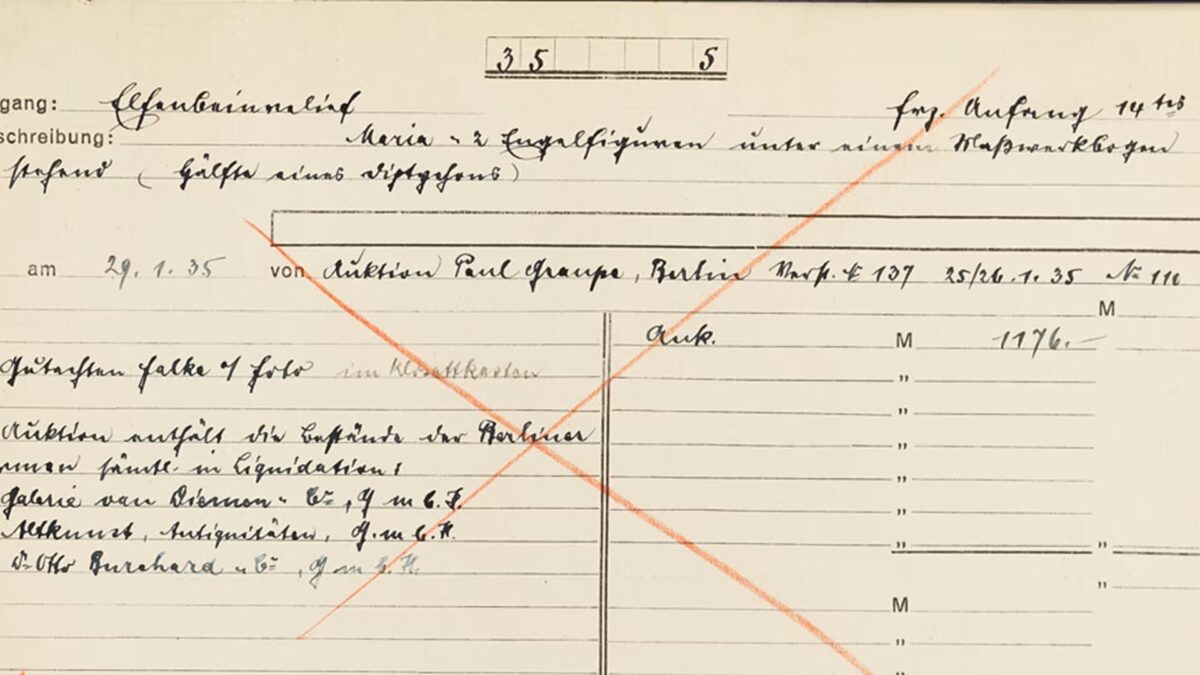 35 5
gang: Elfenbeinrelief frz. Anfang 14tes
schreibung: Maria u 2 Engelfiguren unter einem Maßwerkbogen
stehend (Hälfte eines Diptychons)
am 29.1.35 von Auktion Paul Graupe, Berlin Verst. № 137 25/26.1.35 № 110
M
Ank. M 1176.—
Gutachten Falke a/ Foto im Klosettkasten
"
"
Auktion enthält die Bestände der Berliner "
rmen sämtl. in Liquidation: "
Galerie van Diemen u Co, G m b. H. "
Altkunst, Antiquitäten, G. m b. H. " "
Dr Otto Burchard u Co, G m b. H. "
M
"
"